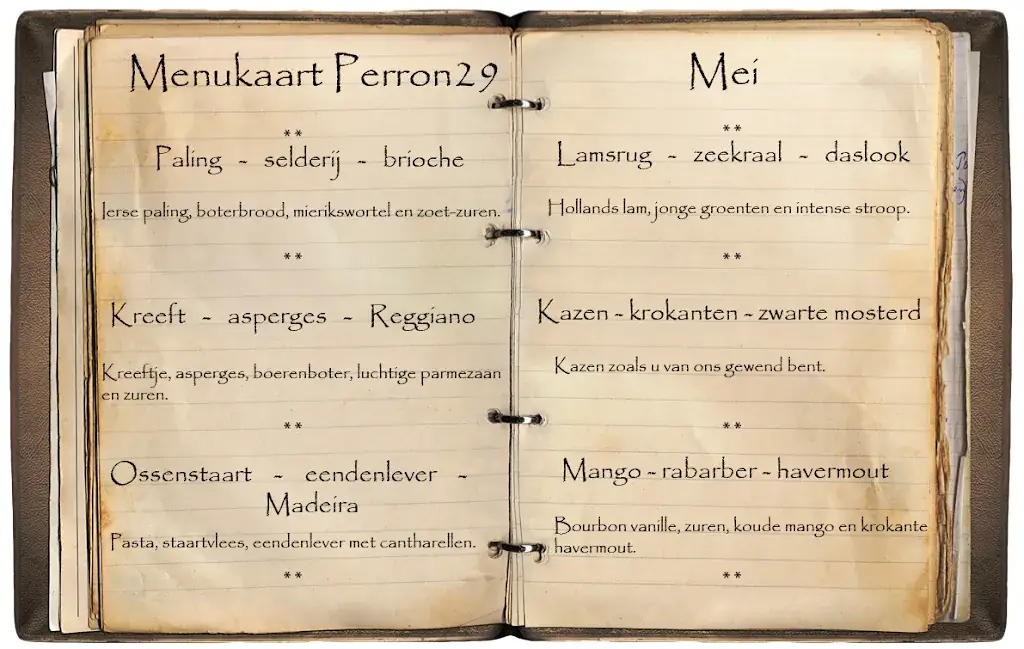 Menukaart Perron29
**
Paling - selderij - brioche
Ierse paling, boterbrood, mierikswortel en zoet-zuren.
**
Kreeft - asperges - Reggiano
Kreeftje, asperges, boerenboter, luchtige parmezaan
en zuren.
**
Ossenstaart - eendenlever -
Madeira
Pasta, staartvlees, eendenlever met cantharellen.
**
Mei
**
Lamsrug - zeekraal - daslook
Hollands lam, jonge groenten en intense stroop.
**
Kazen - krokanten - zwarte mosterd
Kazen zoals u van ons gewend bent.
**
Mango - rabarber - havermout
Bourbon vanille, zuren, koude mango en krokante
havermout.
**